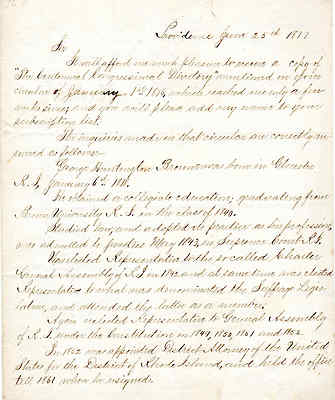 Providence June 25th 1877
Sir
It will afford me much pleasure to receive a copy of
"The Centennial Congressional Directory" mentioned in your
circular of January 1st 1876, which reached me only a few
weeks since, and you will please add my name to your
subscription list.
The inquiries made in that circular are correctly an-
swered as follows:
George Huntington Browne was born in Glocester
R.I., January 6th
He obtained a collegiate education; graduating from
Brown University R.I. in the class of 1840.
Studied law, and adopted its practice as his profession;
was admitted to practice May 1843, in Supreme Court R.I.
Was elected Representative to the so called Charter
General Assembly of R.I. in 1842 and at same time was elected
Representative to what was denominated the Suffrage Legis-
lature, and attended the latter as a member.
Again elected Representative to General Assembly
of R.I. under the Constitution in 1849, 1850, 1851 and 1852.
In 1852 was appointed District Attorney of the United
States for the District of Rhode Island, and held the office
till 1861 when he resigned.